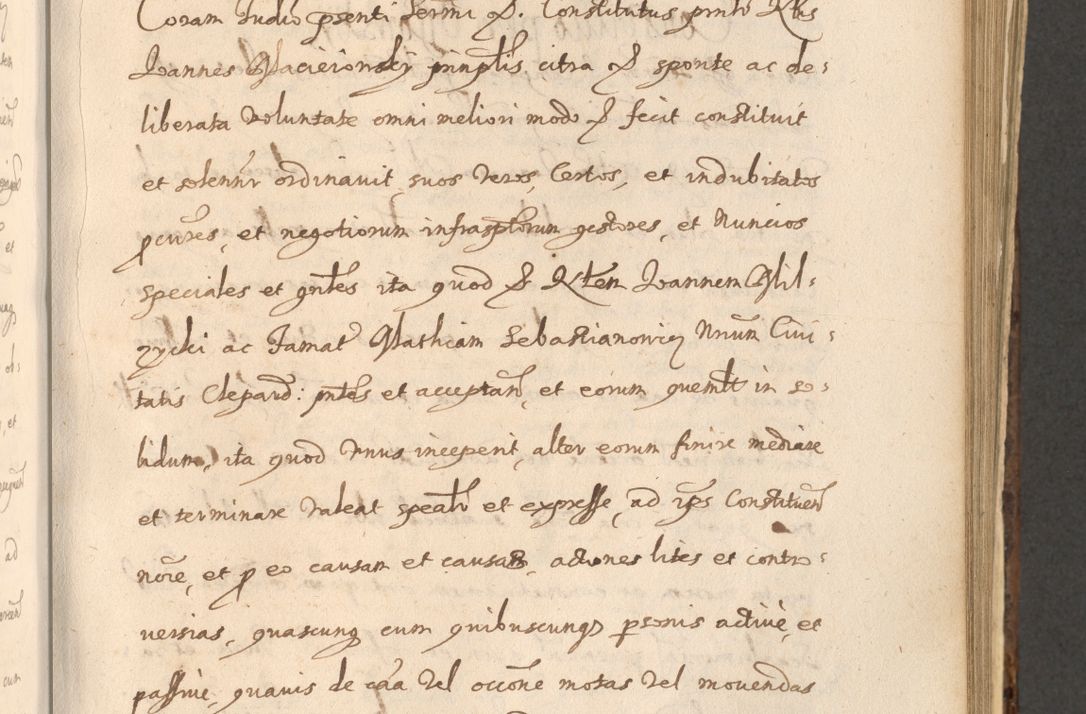 Coram Iudio prsenti Sermi &. Constitutus prnts Rlis
Ioannes Macieiowsky prinplis citra & sponte ac de:
liberata Voluntate omni meliori modo & fecit constituit
et solennr ordinauit, suos Veros, Certos, et indubitatos
pcures, et negotiorum infrasptorum gestores, et Nuncios
speciales et gnles ita quod & Rlem Ioannem Mil:
zycki ac Famat Mathiam Sebastianowicz Nrum Ciui:
tatis Clepard: pntes et acceptan, et eorum quemlt in so:
lidum, ita quod Vnus inceperit, alter eorum finire mediare
et terminare Valeat spealr et expresse, ad ips Constituen
nore, et p eo causam et causas, actiones lites et contro:
uersias, quascunq cum quibuscunq psonis actiue, et
passiue, quauis de caa Vel occone motas Vel mouendas